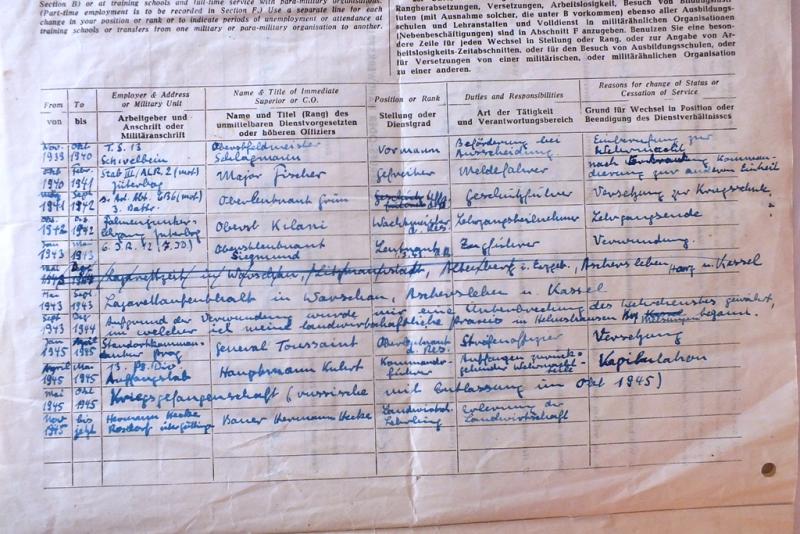 Section B) or at training schools and full-time service with para-military organisations.
(Part-time employment is to be recorded in Section F.) Use a separate line for each
change in your position or rank or to indicate periods of unemployment or attendance at
training schools or transfers from one military or para-military organisation to another.
Rangherabsetzungen, Versetzungen, Arbeitslosigkeit, Besuch von
tuten (mit Ausnahme solcher, die unter B vorkommen) ebenso aller Ausbildungs-
schulen und Lehranstalten und Volldienst in militärähnlichen Organisationen
(Nebenbeschäftigungen) sind in Abschnitt F anzugeben. Benutzen Sie eine beson-
dere Zeile für jeden Wechsel in Stellung oder Rang, oder zur Angabe von Ar-
beitslosigkeits-Zeitabschnitten, oder für den Besuch von Ausbildungsschulen, oder
für Versetzungen von einer militärischen, oder militärähnlichen Organisation
zu einer anderen.
From von
To bis
Employer & Address or Military Unit
Arbeitgeber und Anschrift oder Militäranschrift
Name & Title of Immediate Superior or C.O.
Name und Titel (Rang) des unmittelbaren Dienstvorgesetzten oder höheren Offiziers
Position or Rank
Stellung oder Dienstgrad
Duties and Responsibilities
Art der Tätigkeit und Verantwortungsbereich
Reasons for change of Status or Cessation of Service
Grund für Wechsel in Position oder Beendigung des Dienstverhältnisses
Nov. 1939 Okt 1940 T. S. 13 Schivelbein Oberstfeldmeister Vormann Beförderung bei Ausscheidung Einberufung zur Wehrmacht
Okt 1940 Febr. 1941 Stab III/A.R. 2 (mot) Jüterbog Major Fischer Gefreiter Meldefahrer nach Kommandierung zur anderen Einheit
1941 Sept 1942 s. Art. Abt. (mot) 3. Battr. Oberleutnant Geschützführer Versetzung zur Kriegsschule
1942 1942 Jüterbog Oberst Kilani Wachtmeister d. Res. Lehrgangsteilnehmer Lehrgangsende
Jan 1943 Mai 1943 G.J.R. (7. JD) Oberstleutnant Siegmund Leutnant Zugführer Verwundung.
Lazarettzeit in Warschau, Litzmannstadt, Altenberg i. Erzgeb., Aschersleben, Harz u. Kassel
Mai 1943 Sept 1943 Lazarettaufenthalt in Warschau, Aschersleben u Kassel
Sept 1943 Dez 1944 Aufgrund der Verwundung wurde mir eine Unterbrechung des Wehrdienstes gewährt,
in welcher ich meine landwirtschaftliche Praxis in begann.
Jan 1945 April 1945 Standortkommandantur Prag General Toussaint Oberleutnant d. Res. Streifenoffizier Versetzung
April 1945 Mai 1945 13. Pz. Div. Auffangstab Hauptmann Kommandoführer Auffangen zurückgehender Wehrmachtteile Kapitulation
Mai 1945 Okt 1945 Kriegsgefangenschaft (russische mit Entlassung im Okt 1945)
Nov 1945 bis jetzt Hermann Hecke Rosdorf über Göttingen Bauer Hermann Hecke Landwirtsch. Lehrling Erlernung der Landwirtschaft